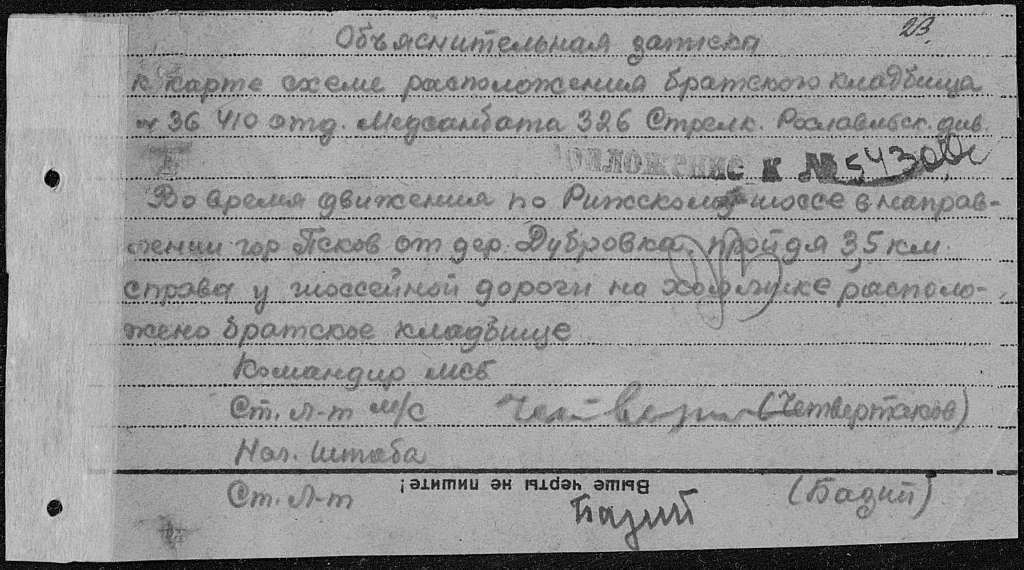 23.
Объяснительная записка
к карте схеме расположения братского кладбища
№ 36 410 отд. Медсанбата 326 Стрелк. Рославльск. див.
к № 54300с
Во время движения по Рижскому шоссе в направ-
лении гор Псков от дер. Дубровка пройдя 3,5 км.
справа у шоссейной дороги на холмике располо-
жено братское кладбище
Командир мсб
Ст. л-т м/с (Четвертаков)
Нач. штаба
Выше черты не пишите!
Ст. л-т Базий (Базий)